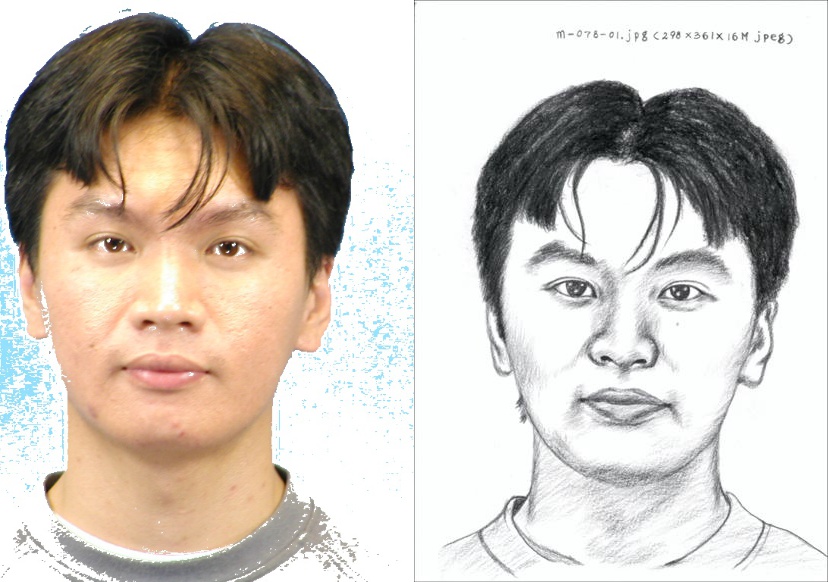 m-078-01.jpg (298×361×16M jpeg)